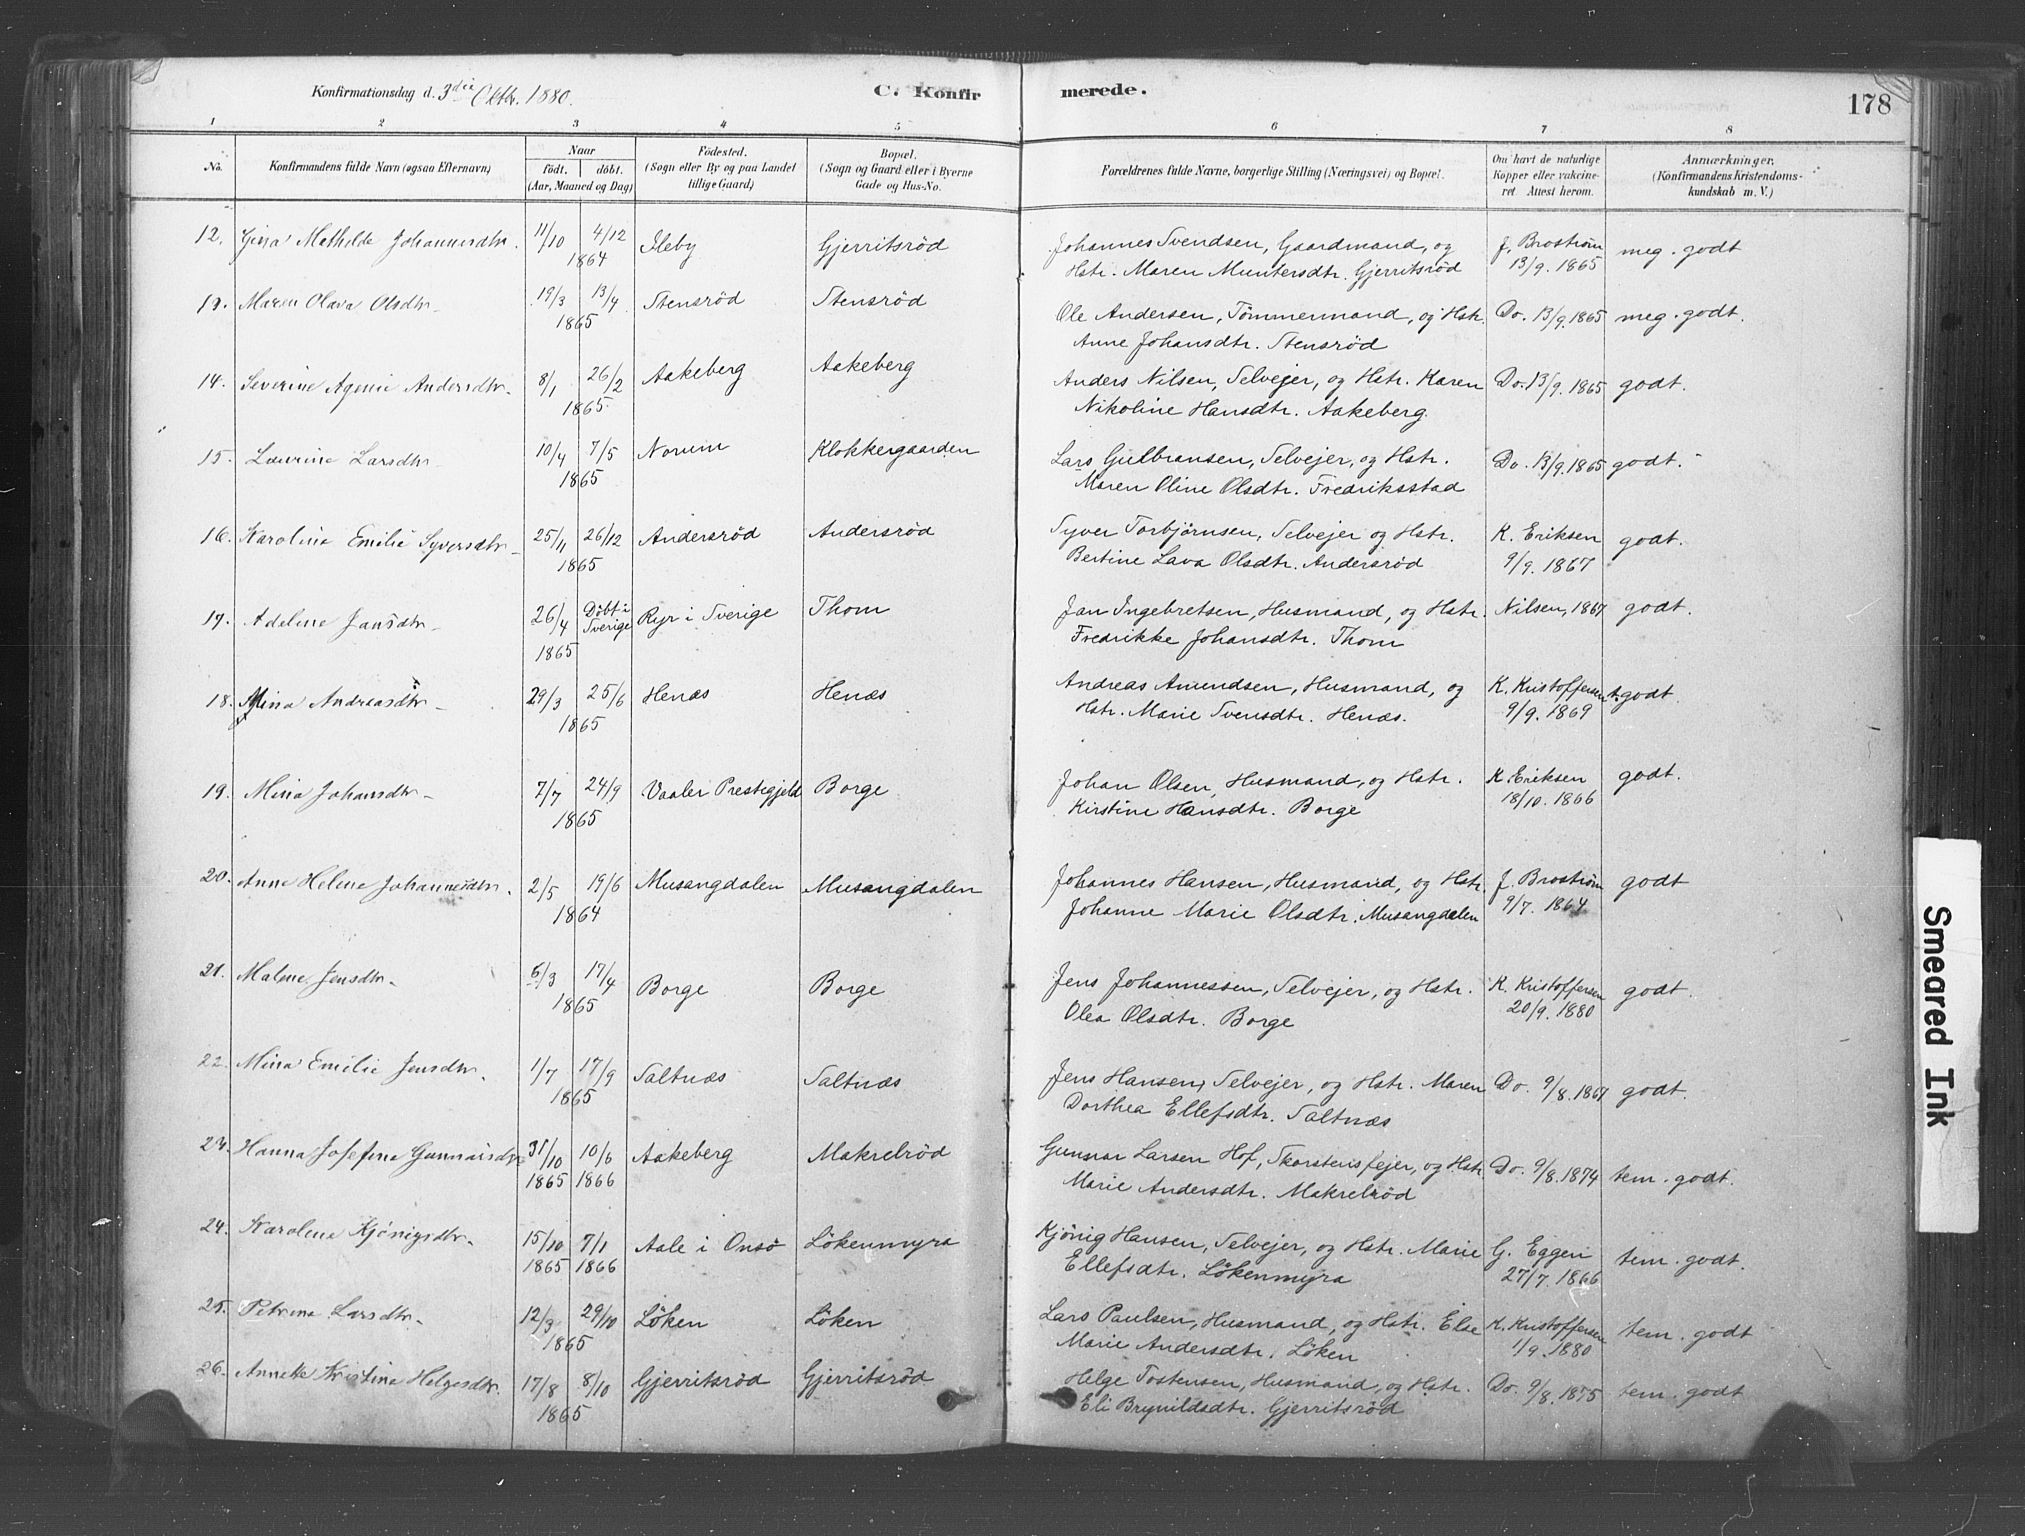 Konfirmationsdag d. 3die Oktbr. 1880.
C. Konfirmerede.
178
1 2 3 4 5 6 7 8
No. Konfirmandens fulde Navn (ogsaa Efternavn) Naar født. døbt. (Aar, Maaned og Dag) Fødested. (Sogn eller By og paa Landet tillige Gaard) Bopæl. (Sogn og Gaard eller i Byerne Gade og Hus-No. Forældrenes fulde Navne, borgerlige Stilling (Næringsvei) og Bopæl. Om havt de naturlige Kopper eller vakcineret. Attest herom. Anmærkninger. (Konfirmandens Kristendomskundskab m. V.)
12. Gina Mathilde Johannesdtr. 11/10 4/12 Ileby Gjerritsröd Johannes Svendsen, Gaardmand, og J. Broström meg. godt
1864 Hstr. Maren Muntersdtr. Gjerritsröd 13/9. 1865
13. Maren Olava Olsdtr. 19/3 13/4 Stensröd Stensröd Ole Andersen, Tömmermand, og Hstr. Do. 13/9. 1865 meg. godt.
1865 Anne Johansdtr. Stensröd
14. Severine Agenie Andersdtr. 8/1 26/2 Aakeberg Aakeberg Anders Nilsen, Selvejer, og Hstr. Karen Do. 13/9. 1865 godt.
1865 Nikoline Hansdtr. Aakeberg.
15. Laurine Larsdtr. 10/4 7/5 Norum Klokkergaarden Lars Gulbransen, Selvejer, og Hstr. Do. 13/9. 1865 godt.
1865 Maren Oline Olsdtr. Fredriksstad
16. Karoline Emilie Syversdtr. 25/11 26/12 Andersröd Andersröd Syver Torbjörnsen, Selvejer og Hstr. K. Eriksen godt.
1865 Bertine Lava Olsdtr. Andersröd 9/9. 1867
17. Adelene Jansdtr. 26/4 Döbt i Sverige Ryr i Sverige Thom Jan Ingebretsen, Husmand, og Hstr. Nilsen, 1867 godt.
1865 Fredrikke Johansdtr. Thom
18. Mina Andreasdtr. 29/3 25/6 Henæs Henæs Andreas Amundsen, Husmand, og K. Kristoffersen t. godt
1865 Hstr. Marie Svensdtr. Henæs. 9/9. 1869
19. Mina Johansdtr. 7/7 24/9 Vaaler Prestegjeld Borge Johan Olsen, Husmand, og Hstr. K. Eriksen godt.
1865 Kirstine Hansdtr. Borge 18/10. 1866
20. Anne Helene Johannesdtr. 2/5 19/6 Musangdalen Musangdalen Johannes Hansen, Husmand, og Hstr. J. Broström godt
1864 Johanne Marie Olsdtr. Musangdalen 9/7. 1864
21. Malene Jensdtr. 6/3 17/4 Borge Borge Jens Johannessen, Selvejer, og Hstr. K. Kristoffersen godt.
1865 Olea Olsdtr. Borge 20/9. 1880
22. Mina Emilie Jensdtr. 1/7 17/9 Saltnæs Saltnæs Jens Hansen, Selvejer, og Hstr. Maren Do. 9/8. 1867 godt.
1865 Dorthea Ellefsdtr. Saltnæs
23. Hanna Josefine Gunnarsdtr. 31/10 10/6 Aakeberg Makrelröd Gunnar Larsen Hof, Skorstensfejer, og Hstr. Do. 9/8. 1874 tem. godt.
1865 1866 Marie Andersdtr. Makrelröd
24. Karoline Kjönigsdtr. 15/10 7/1 Aale i Onsö Lökenmyra Kjönig Hansen, Selvejer, og Hstr. Marie G. Eggen tem. godt.
1865 1866 Ellefsdtr. Lökenmyra 27/7. 1866
25. Petrine Larsdtr. 12/3 29/10 Löken Löken Lars Paulsen, Husmand, og Hstr. Else K. Kristoffersen tem. godt
1865 Marie Andersdtr. Löken 1/9. 1880
26. Annette Kristine Helgesdtr. 17/8 8/10 Gjerritsröd Gjerritsröd Helge Tostensen, Husmand, og Hstr. Do. 9/8. 1875 tem. godt
1865 Eli Brynildsdtr. Gjerritsröd
Smeared Ink